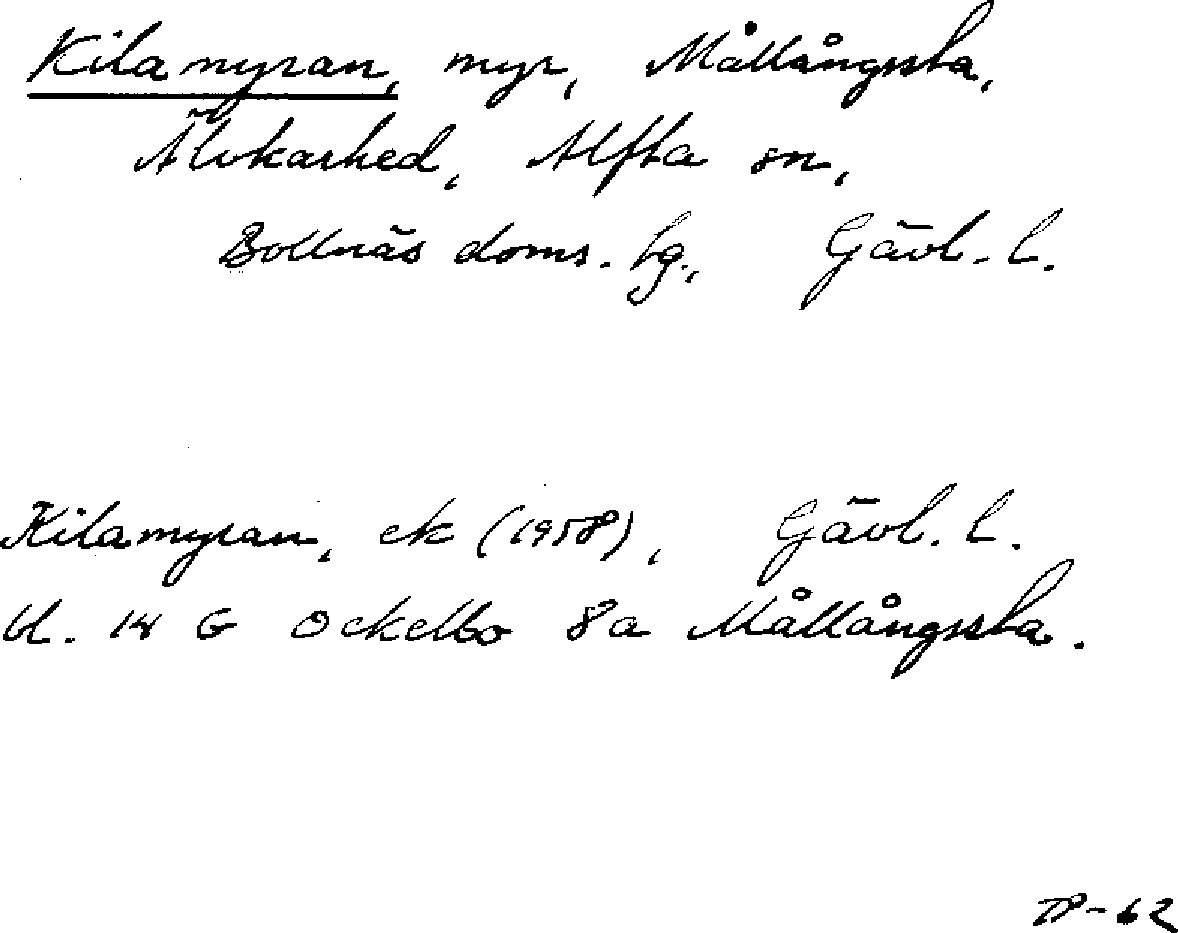 Kilamyran, myr, Mållångssta,
Älvkarhed, Alfta sn,
Bollnäs doms. hg., Gävl. l.
Kilamyran, ek (1958), Gävl. l.
bl. 14 G Ockelbo 8a Mållångssta.
-62